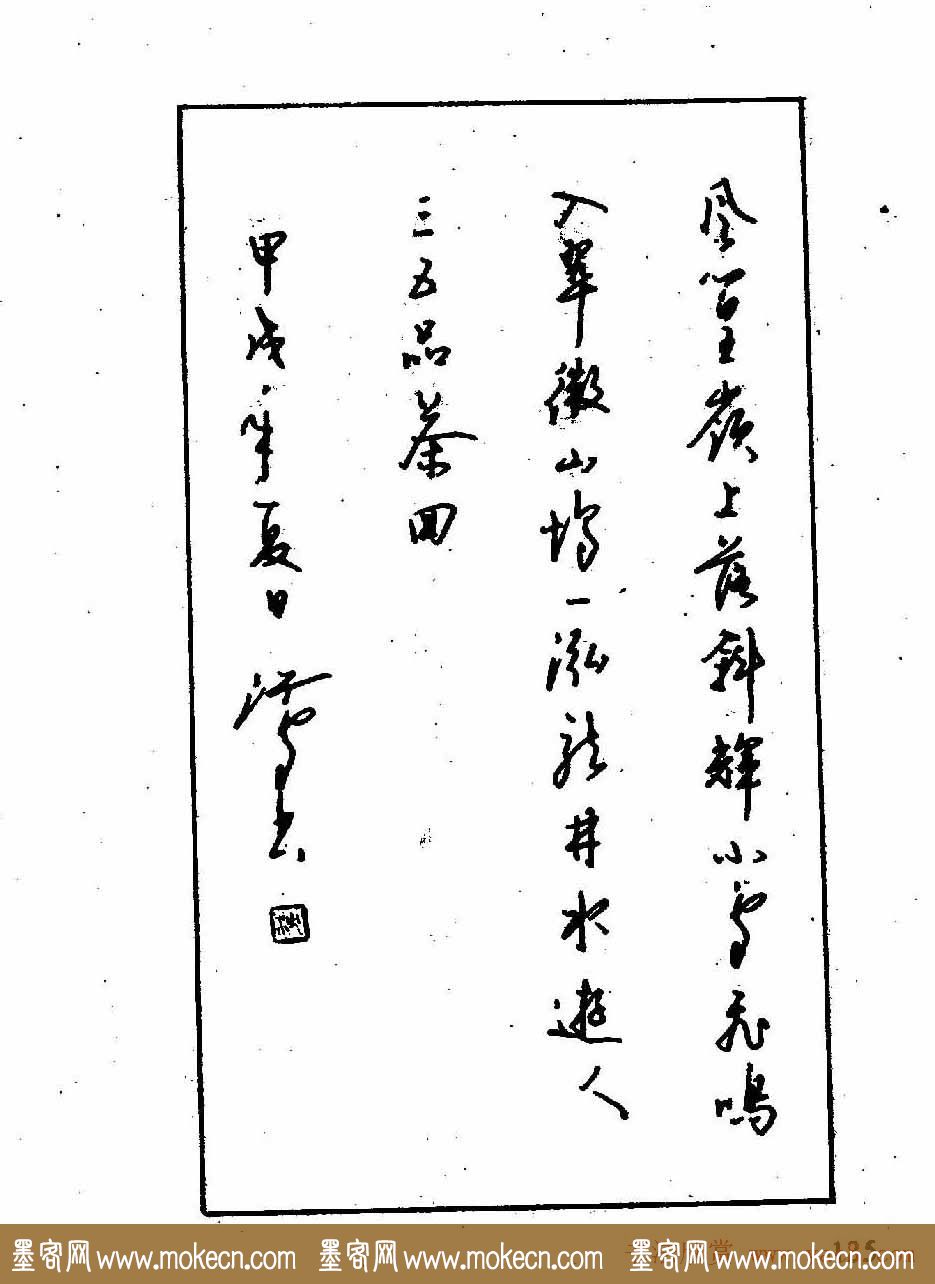 风篁嶺上落斜輝小雪飛鳴
入翠微山塢一泓龙井水遊人
三五品茶回
甲戌年夏日 汪雪书
墨客网 www.mokecn.com 墨客网 www.mokecn.com 墨客网 www.mokecn.com